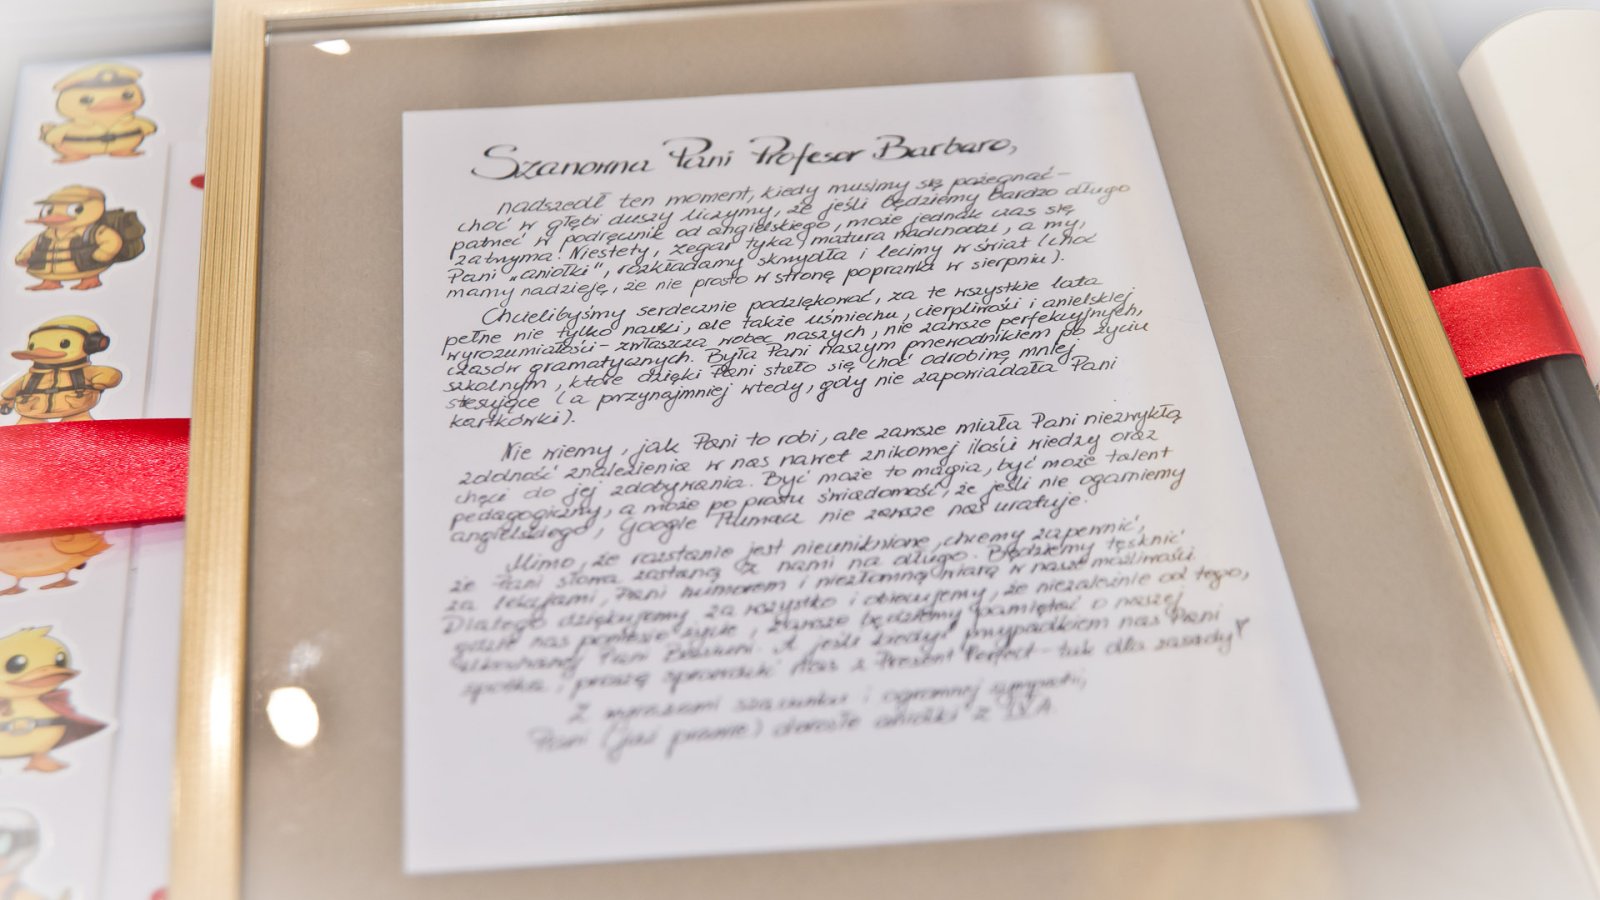 Szanowna Pani Profesor Barbaro,
nadszedł ten moment, kiedy musimy się pożegnać -
choć w głębi duszy liczymy, że jeśli będziemy bardzo długo
patrzeć w podręcznik od angielskiego, może jednak czas się
zatrzyma. Niestety, zegar tyka, matura nadchodzi, a my,
Pani „aniołki", rozkładamy skrzydła i lecimy w świat (choć
mamy nadzieję, że nie prosto w stronę poprawki w sierpniu).
Chcielibyśmy serdecznie podziękować, za te wszystkie lata
pełne nie tylko nauki, ale także uśmiechu, cierpliwości i anielskiej
wyrozumiałości - zwłaszcza wobec naszych, nie zawsze perfekcyjnych,
czasów gramatycznych. Była Pani naszym przewodnikiem po życiu
szkolnym, które dzięki Pani stało się choć odrobinę mniej
stresujące (a przynajmniej wtedy, gdy nie zapowiadała Pani
kartkówki).
Nie wiemy, jak Pani to robi, ale zawsze miała Pani niezwykłą
zdolność znalezienia w nas nawet znikomej ilości wiedzy oraz
chęci do jej zdobywania. Być może to magia, być może talent
pedagogiczny, a może po prostu świadomość, że jeśli nie ogarniemy
angielskiego, Google Tłumacz nie zawsze nas uratuje.
Mimo, że rozstanie jest nieuniknione, chcemy zapewnić,
że Pani słowa zostaną z nami na długo. Będziemy tęsknić
za lekcjami, Pani humorem i niezłomną wiarą w nasze możliwości.
Dlatego dziękujemy za wszystko i obiecujemy, że niezależnie od tego,
gdzie nas poniesie życie, zawsze będziemy pamiętać o naszej
Pani A jeśli kiedyś przypadkiem nas Pani
spotka, proszę sprawdzić nas z Present Perfect - tak dla zasady
Z wyrazami szacunku i ogromnej sympatii,
Pani (już prawie) dorosłe aniołki z IVA